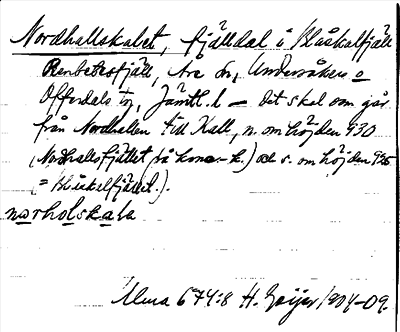 Nordhallskalet, fjälldal i Blåskalfjäll
Renbetesfjäll, Åre sn, Undersåkers o
Offerdals tg, Jämtl. l – det skal om går
från Nordhallen till Kall, n. om höjden 930
(Nordhallsfjället på kona-k.) och s. om höjden 925
(= Blåskalfjället.).
norholskala
Alma 674:8 H. Geijer 1904-09.